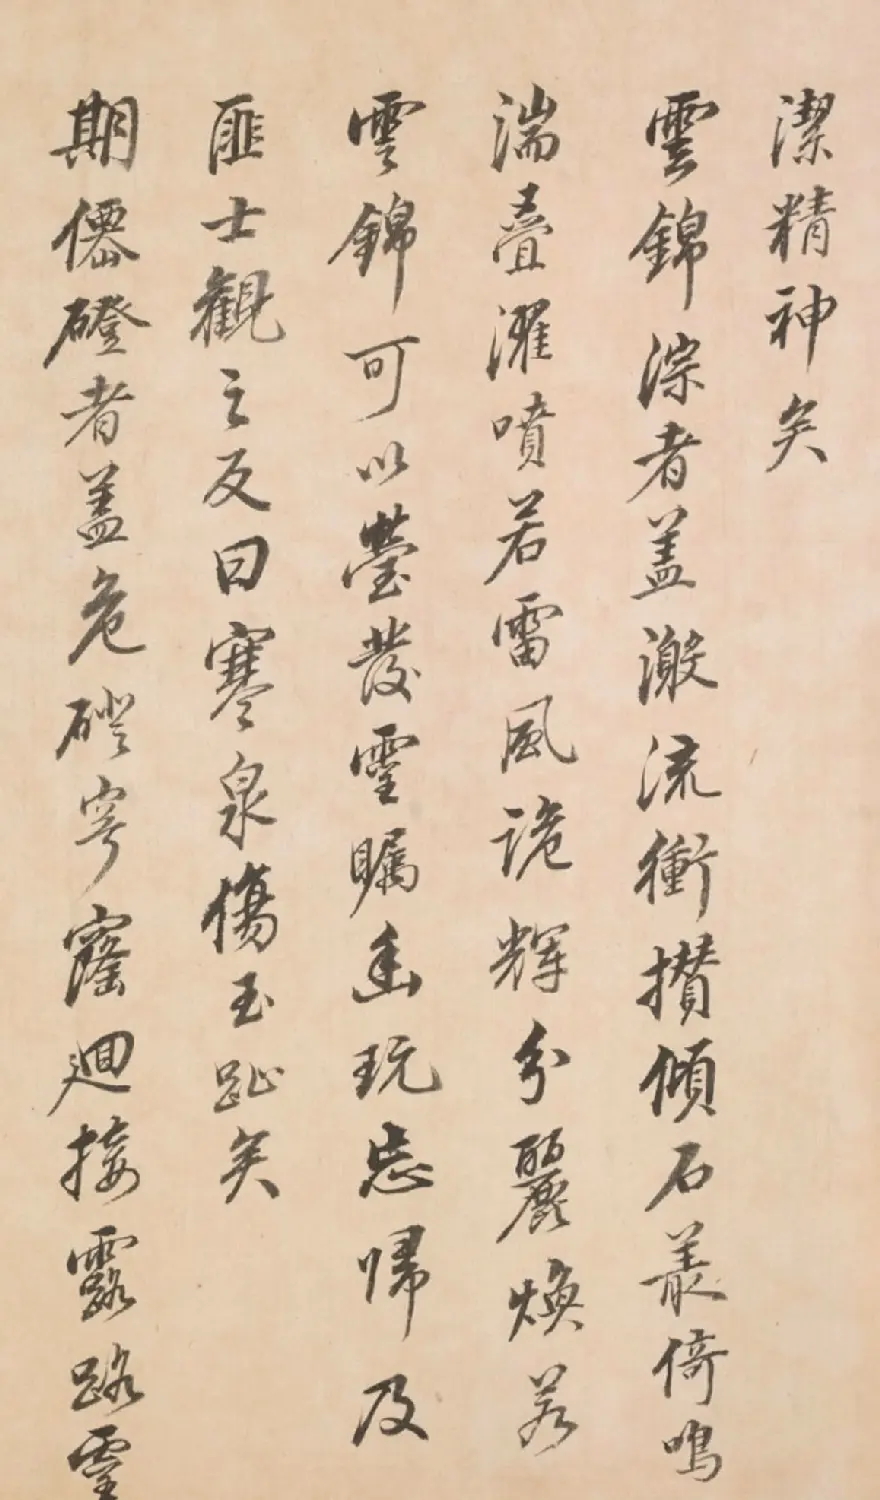 潔精神矣
雲錦淙者蓋激流衝攢傾石叢倚鳴
湍疊濯噴若雷風詭輝分麗煥若
雲錦可以瑩發靈矚幽玩忘歸及
匪士觀之反曰寒泉傷玉趾矣
期僊磴者蓋危磴穹窿廻接露路靈